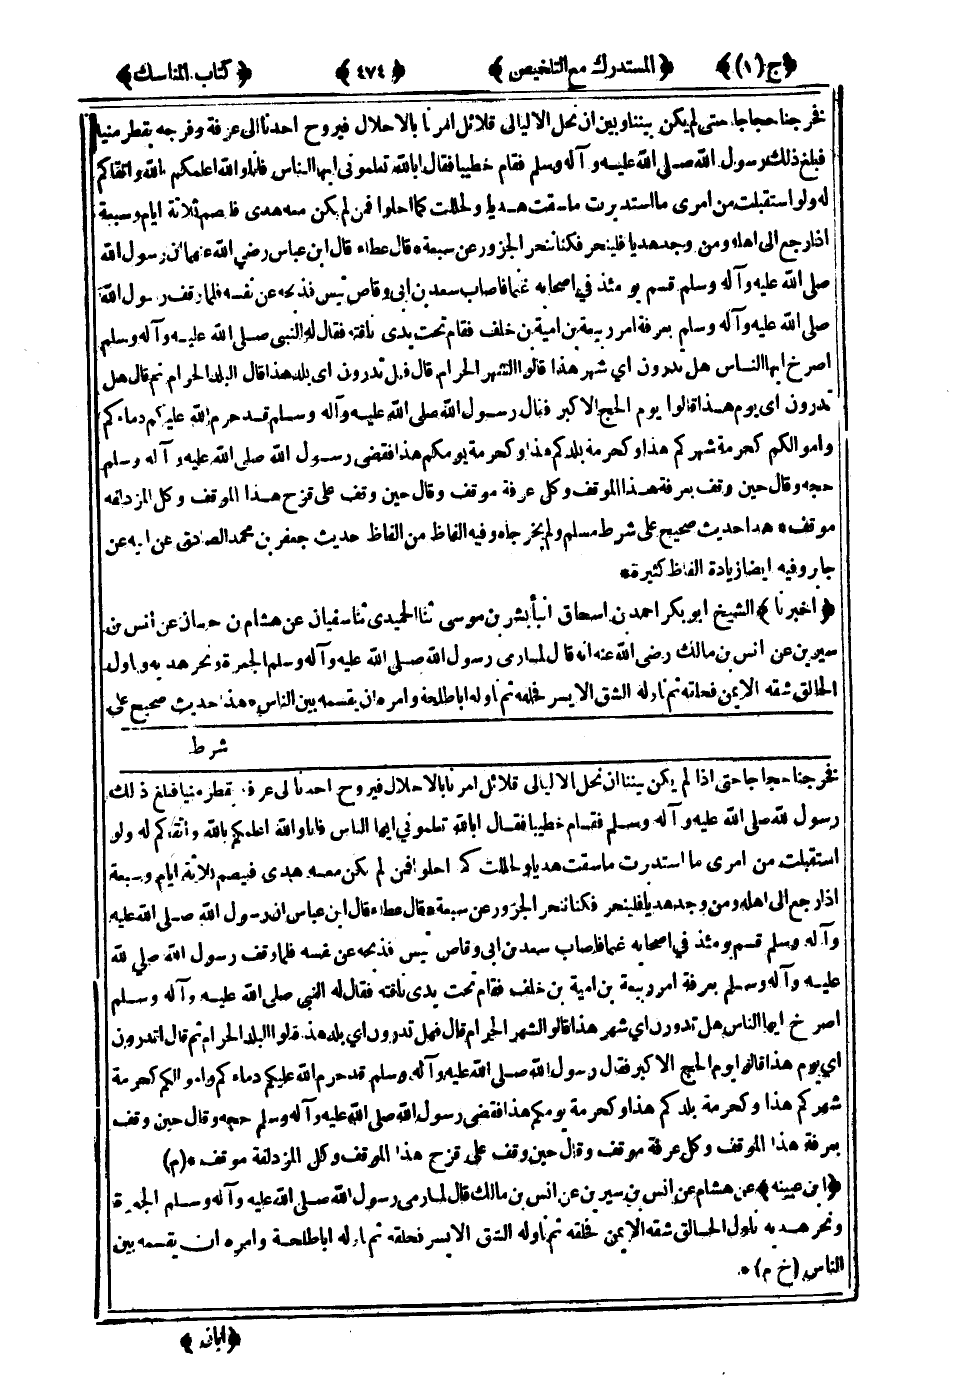 ﴿ج (١)﴾ ﴿المستدرك مع التلخيص﴾ ﴿٤٧٤﴾ ﴿كتاب المناسك﴾
فخرجنا حجاجا حتى لم يكن بيننا وبين ان نحل الا ليالى قلائل امرنا بالاحلال فيروح احدنا الى عرفة وفرجه يقطر منيا
فبلغ ذلك رسول الله صلى الله عليه وآله وسلم فقام خطيبا فقال ابالله تعلمونى ايها الناس فانا والله اعلمكم بالله واتقاكم
له ولو استقبلت من امرى ما استدبرت ما سقت هديا ولحللت كما احلوا فمن لم يكن معه هدى فليصم ثلاثة ايام وسبعة
اذا رجع الى اهله ومن وجد هديا فلينحر فكنا ننحر الجزور عن سبعة * قال عطاء قال ابن عباس رضي الله عنهما ان رسول الله
صلى الله عليه وآله وسلم قسم يومئذ في اصحابه غنما فاصاب سعد بن ابى وقاص تيس فذبحه عن نفسه فلما وقف رسول الله
صلى الله عليه وآله وسلم بعرفة امر ربيعة بن امية بن خلف فقام تحت يدى ناقته فقال له النبي صلى الله عليه وآله وسلم
اصرخ ايها الناس هل تدرون اي شهر هذا قالوا الشهر الحرام قال فهل تدرون اى بلد هذا قال البلد الحرام ثم قال هل
تدرون اى يوم هذا قالوا يوم الحج الاكبر فقال رسول الله صلى الله عليه وآله وسلم قد حرم الله عليكم دماءكم
واموالكم كحرمة شهركم هذا وكحرمة بلدكم هذا وكحرمة يومكم هذا فقضى رسول الله صلى الله عليه وآله وسلم
حجه وقال حين وقف بعرفة هذا الموقف وكل عرفة موقف وقال حين وقف على قزح هذا الموقف وكل المزدلفه
موقف * هذا حديث صحيح على شرط مسلم ولم يخرجاه وفيه الفاظ من الفاظ حديث جعفر بن محمد الصادق عن ابيه عن
جابر وفيه ايضا زيادة الفاظ كثيرة *
﴿اخبرنا﴾ الشيخ ابو بكر احمد بن اسحاق انبأ بشر بن موسى ثنا الحميدى ثنا سفيان عن هشام بن حسان عن انس بن
سيرين عن انس بن مالك رضى الله عنه انه قال لما رمى رسول الله صلى الله عليه وآله وسلم الجمرة ونحر هديه وناول
الحالق شقه الايمن فحلقه ثم ناوله الشق الايسر فحلقه ثم ناوله اباطلحة وامره ان يقسمه بين الناس * هذا حديث صحيح على
شرط
فخرجنا حجاجا حتى اذا لم يكن بيننا ان نحل الا ليالى قلائل امرنا بالاحلال فيروح احدنا لى عرفة يقطر منيا فبلغ ذلك
رسول الله صلى الله عليه وآله وسلم فقام خطيبا فقال ابالله تعلموني ايها الناس فانا والله اعلمكم بالله واتقاكم له ولو
استقبلت من امرى ما استدبرت ما سقت هديا ولحللت كما احلوا فمن لم يكن معه هدى فيصم ثلاثة ايام وسبعة
اذا رجع الى اهله ومن وجد هديا فلينحر فكنا ننحر الجزور عن سبعة * قال عطاء قال ابن عباس ان رسول الله صلى الله عليه
وآله وسلم قسم يومئذ في اصحابه غنما فاصاب سعد بن ابى وقاص تيس فذبحه عن نفسه فلما وقف رسول الله صلى الله
عليه وآله وسلم بعرفة امر ربيعة بن امية بن خلف فقام تحت يدى ناقته فقال له النبي صلى الله عليه وآله وسلم
اصرخ ايها الناس هل تدرون اي شهر هذا قالوا الشهر الحرام قال فهل تدرون اي بلد هذا قالوا البلد الحرام ثم قال اتدرون
اي يوم هذا قالوا يوم الحج الاكبر فقال رسول الله صلى الله عليه وآله وسلم قد حرم الله عليكم دماءكم واموالكم كحرمة
شهركم هذا وكحرمة بلدكم هذا وكحرمة يومكم هذا فقضى رسول الله صلى الله عليه وآله وسلم حجه وقال حين وقف
بعرفة هذا الموقف وكل عرفة موقف وقال حين وقف على قزح هذا الموقف وكل المزدلفة موقف * (م)
﴿ابن عيينه﴾ عن هشام عن انس بن سيرين عن انس بن مالك قال لما رمى رسول الله صلى الله عليه وآله وسلم الجمرة
ونحر هديه ناول الحالق شقه الايمن فحلقه ثم ناوله الشق الايسر فحلقه ثم ناوله اباطلحة وامره ان يقسمه بين
الناس (خ م) *